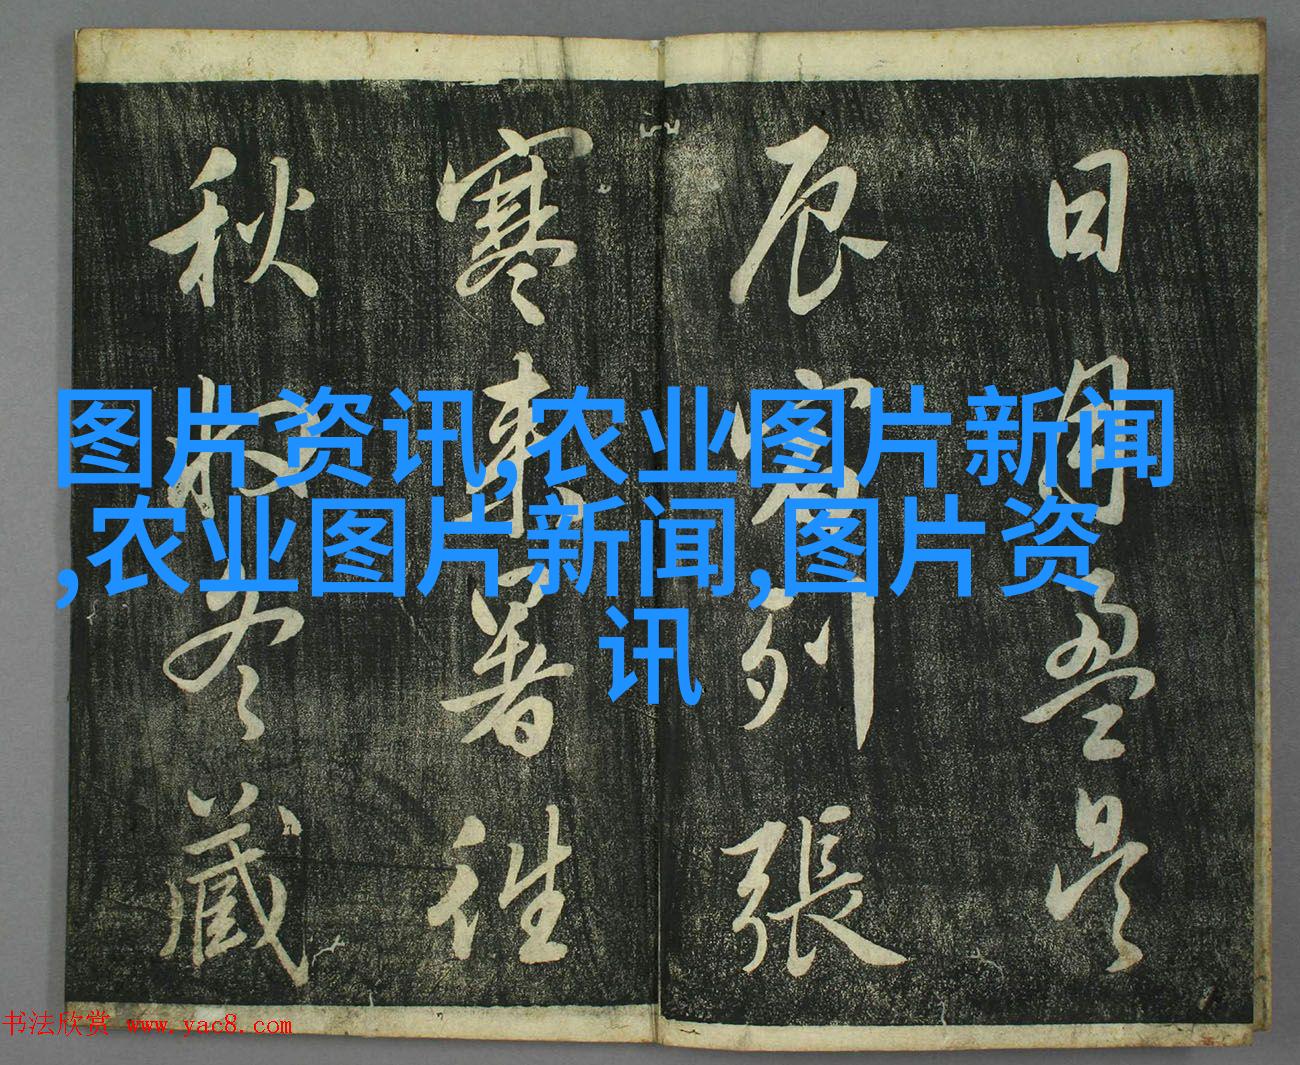 日月盈昃
辰宿列張
寒來暑往
秋收冬藏
图片资讯,农业图片新闻
,农业图片新闻,图片资
讯
书法欣赏 www.yac8.com